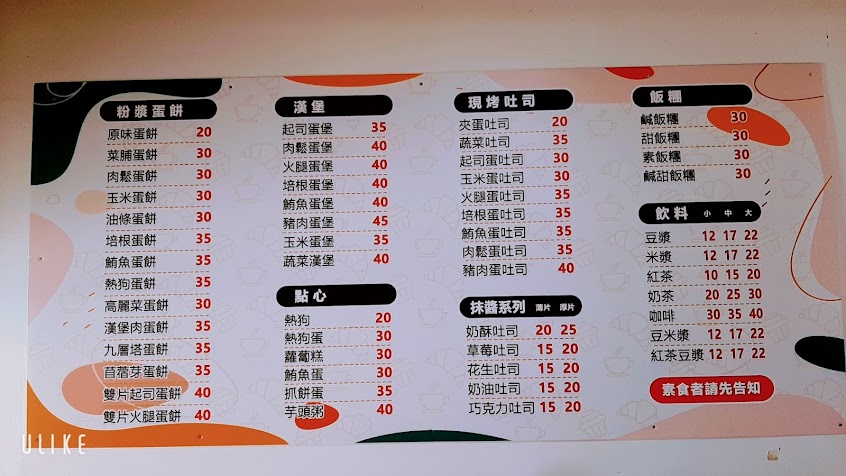 粉漿蛋餅
原味蛋餅 20
菜脯蛋餅 30
肉鬆蛋餅 30
玉米蛋餅 30
油條蛋餅 30
培根蛋餅 35
鮪魚蛋餅 35
熱狗蛋餅 35
高麗菜蛋餅 30
漢堡肉蛋餅 35
九層塔蛋餅 35
苜蓿芽蛋餅 35
雙片起司蛋餅 40
雙片火腿蛋餅 40
漢堡
起司蛋堡 35
肉鬆蛋堡 40
火腿蛋堡 40
培根蛋堡 40
鮪魚蛋堡 40
豬肉蛋堡 45
玉米蛋堡 35
蔬菜漢堡 40
點心
熱狗 20
熱狗蛋 30
蘿蔔糕 30
鮪魚蛋 30
抓餅蛋 35
芋頭粥 40
現烤吐司
夾蛋吐司 20
蔬菜吐司 35
起司蛋吐司 30
玉米蛋吐司 30
火腿蛋吐司 35
培根蛋吐司 35
鮪魚蛋吐司 35
肉鬆蛋吐司 35
豬肉蛋吐司 40
抹醬系列 薄片 厚片
奶酥吐司 20 25
草莓吐司 15 20
花生吐司 15 20
奶油吐司 15 20
巧克力吐司 15 20
飯糰
鹹飯糰 30
甜飯糰 30
素飯糰 30
鹹甜飯糰 30
飲料 小 中 大
豆漿 12 17 22
米漿 12 17 22
紅茶 10 15 20
奶茶 20 25 30
咖啡 30 35 40
豆米漿 12 17 22
紅茶豆漿 12 17 22
素食者請先告知
ULIKE